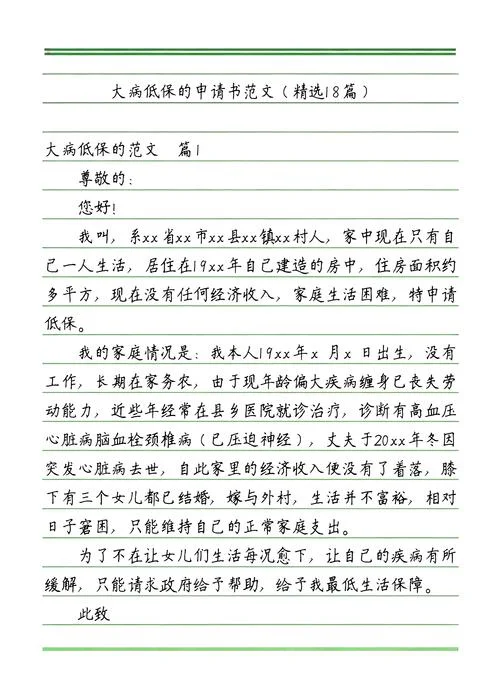 大病低保的申请书范文（精选18篇）
大病低保的范文　篇1
尊敬的：
您好！
我叫，系xx省xx市xx县xx镇xx村人，家中现在只有自
己一人生活，居住在19xx年自己建造的房中，住房面积约
多平方，现在没有任何经济收入，家庭生活困难，特申请
低保。
我的家庭情况是：我本人19xx年x 月x 日出生，没有
工作，长期在家务农，由于现年龄偏大疾病缠身已丧失劳
动能力，近些年经常在县乡医院就诊治疗，诊断有高血压
心脏病脑血栓颈椎病（已压迫神经），丈夫于20xx年冬因
突发心脏病去世，自此家里的经济收入便没有了着落，膝
下有三个女儿都已结婚，嫁与外村，生活并不富裕，相对
日子窘困，只能维持自己的正常家庭支出。
为了不在让女儿们生活每况愈下，让自己的疾病有所
缓解，只能请求政府给予帮助，给予我最低生活保障。
此致